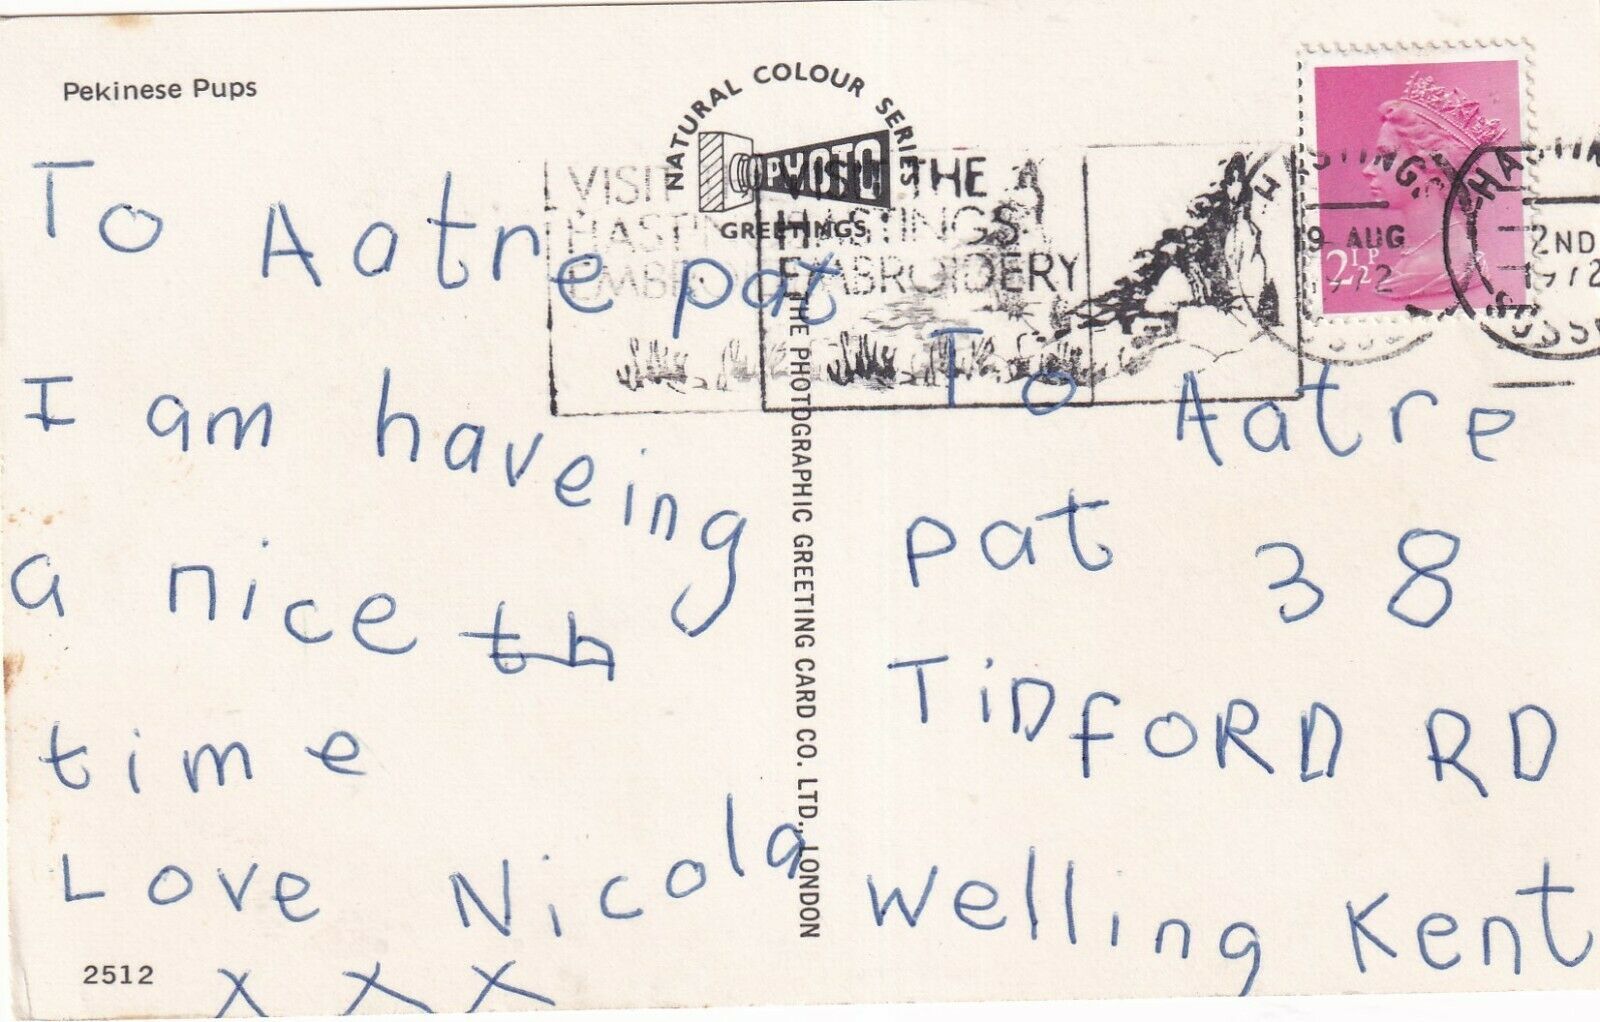 Pekinese Pups
NATURAL COLOUR SERIES
PHOTO
GREETINGS
VISIT THE
HASTINGS
EMBROIDERY
HASTINGS
9 AUG
1972
SUSSEX
2½P
2ND
1972
To Aatre pat
I am haveing
a nice th
time
Love Nicola
x x x
2512
THE PHOTOGRAPHIC GREETING CARD CO. LTD., LONDON
To Aatre
pat 38
TiDfORD RD
Welling Kent